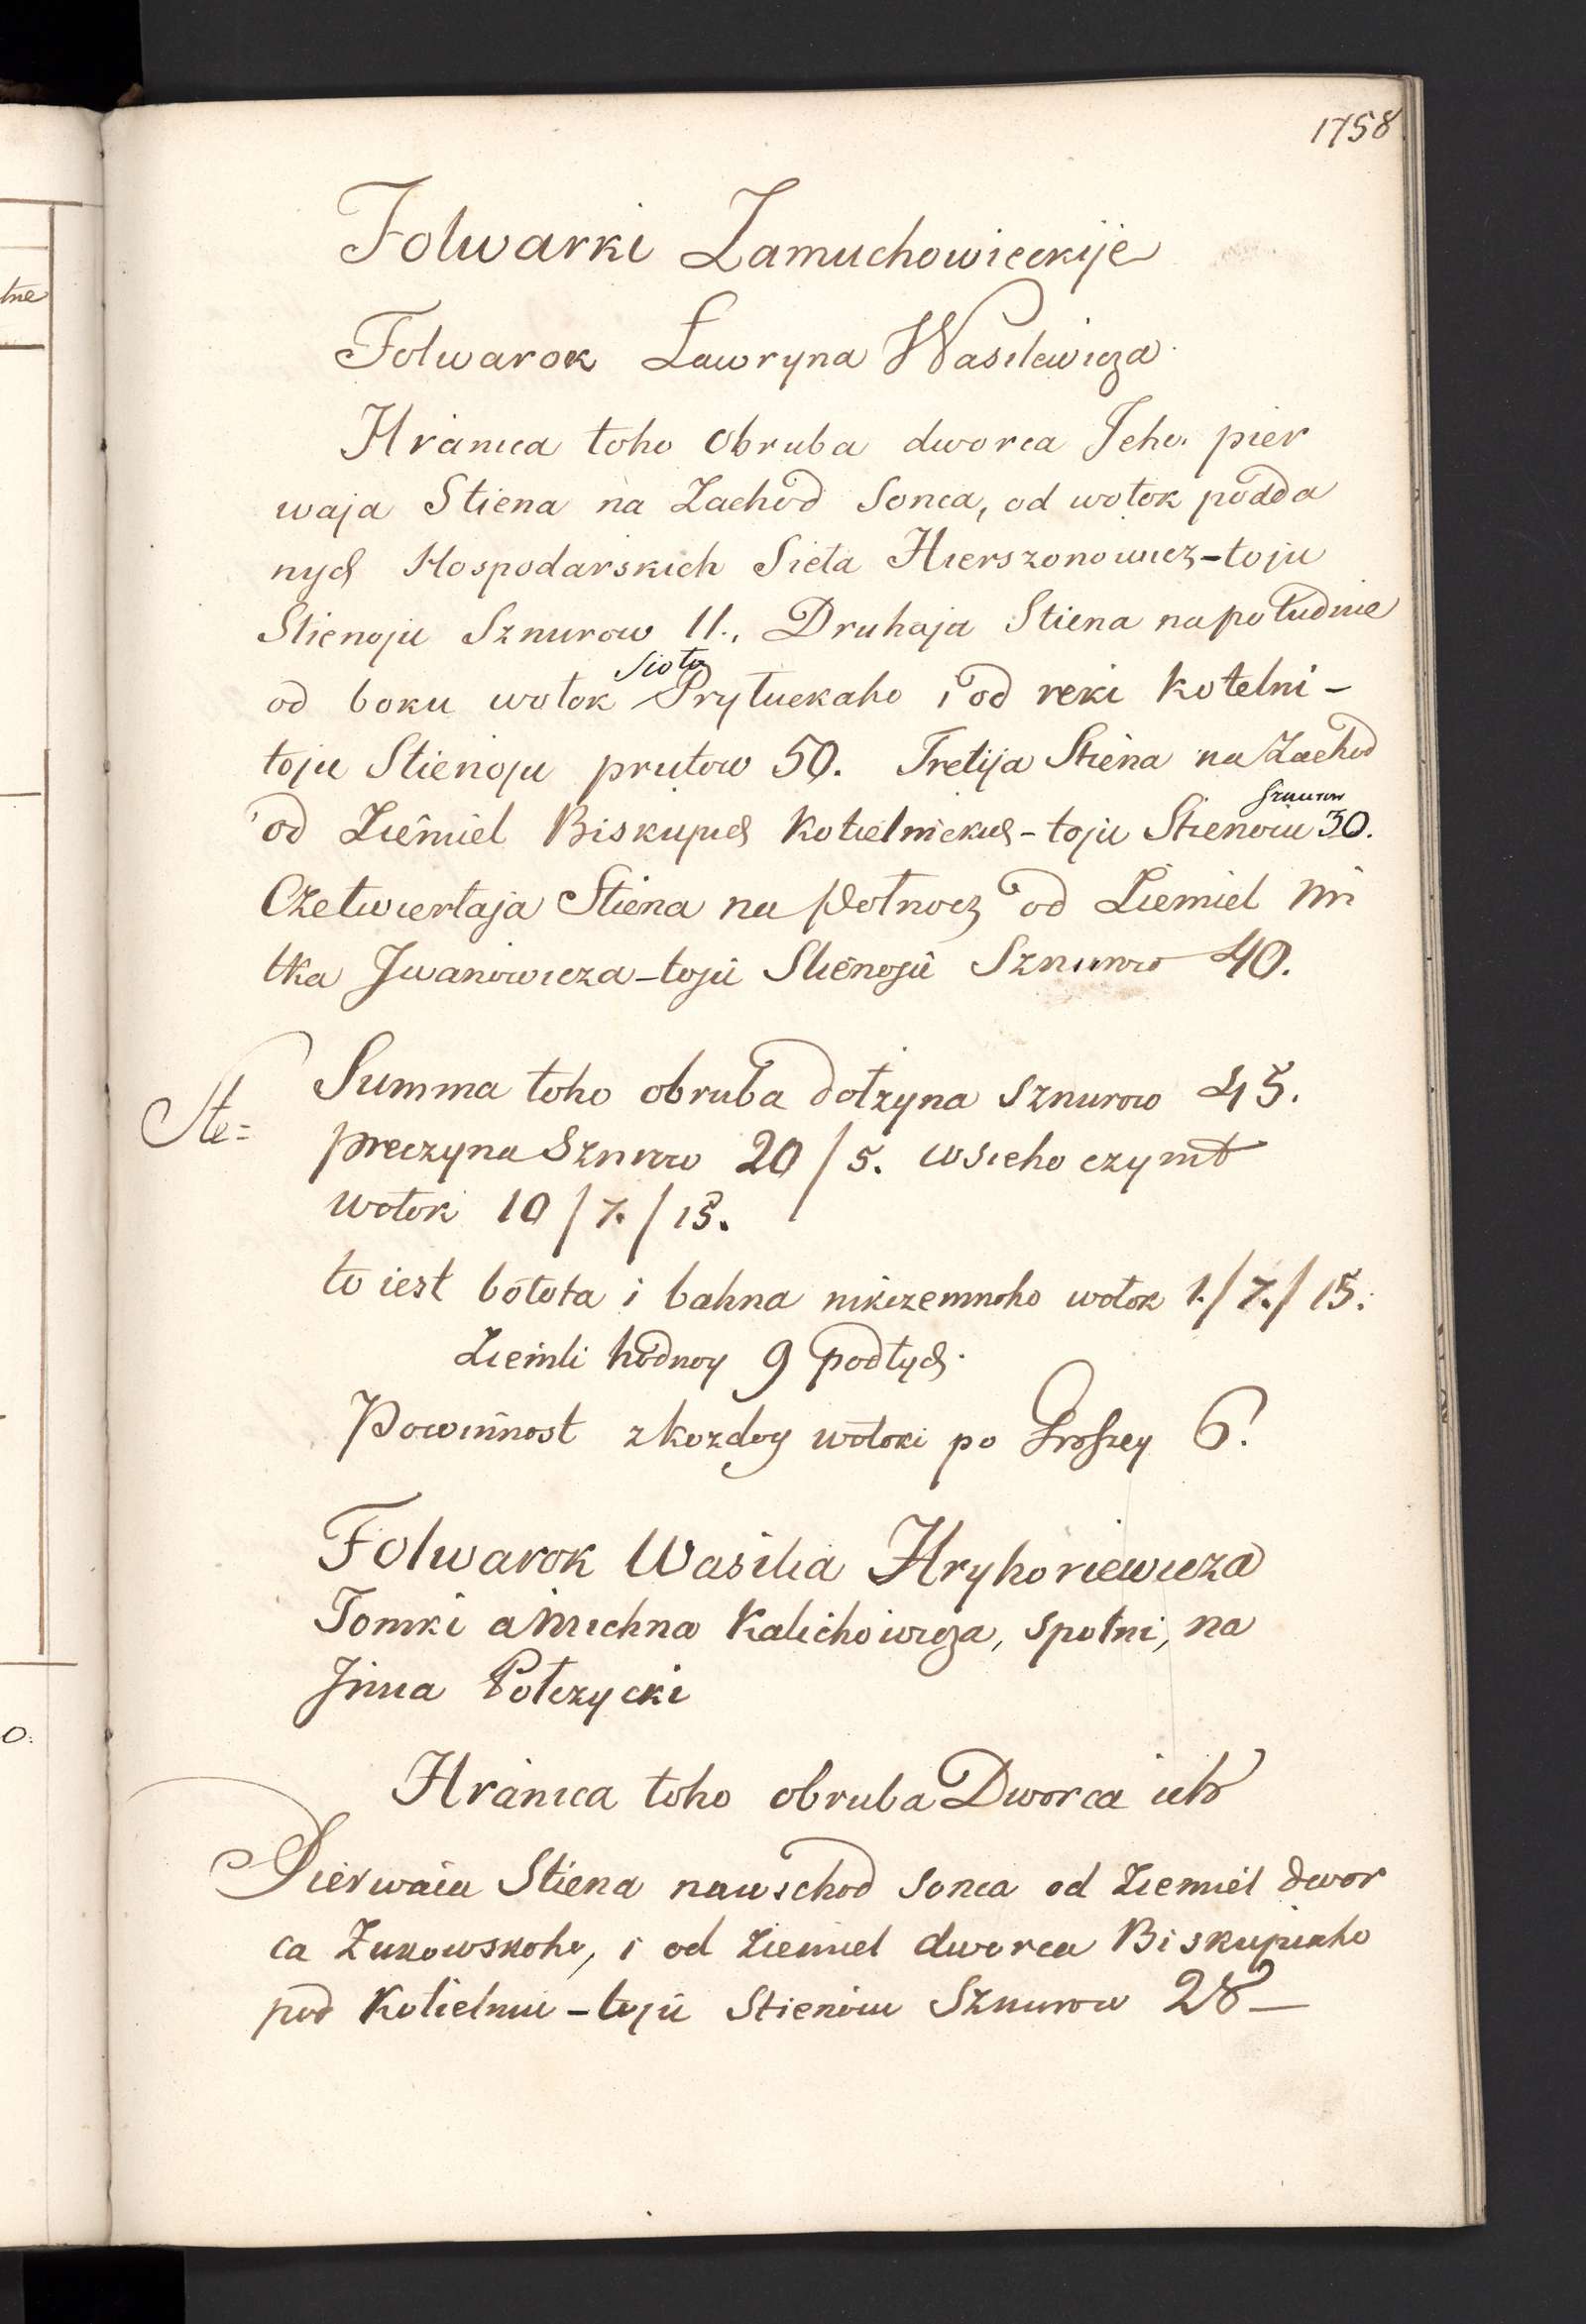 1758
Folwarki Zamuchowieckije
Folwarok Ławryna Wasilewicza
Hranica toho obruba dworca Jeho. pier
waja Stiena na Zachod Sonca, od wołok podda
nych Hospodarskich Sieła Hierszonowicz-toju
Stienoju Sznurow 11., Druhaja Stiena na południe
od boku wołok Sioła Pryłuckaho i od reki Kotelni-
toju Stienoju prutow 50. Tretija Stiena na Zachod
od Ziemiel Biskupich Kotielnickich-toju Stienoiu Sznurow 30.
Czetwiertaja Stiena na Połnocz od Ziemiel Mi
tka Jwanowicza-toju Stienoju Sznurow 40.
Summa toho obruba dołzyna sznurow 45.
Ste=
preczyna Sznurow 20/5. wsieho czynit
wołok 10/7./15.
to iest bołota i bahna nikczemnoho wołok 1./7./15.
Ziemli hodnoy 9 podłych.
Powinnost z kozdoy wołoki po Groszey 6.
Folwarok Wasilia Hryhoriewicza
Tomki a Michna Kalichowicza, społni, na
Jmia Połczycki
Hranica toho obruba Dworca ich
Pierwaia Stiena nawschod sonca od Ziemiel dwor
ca Zukowskoho, i od Ziemiel dworca Biskupieho
pod Kotielniu-toju Stienoiu Sznurow 28-
tne
0.